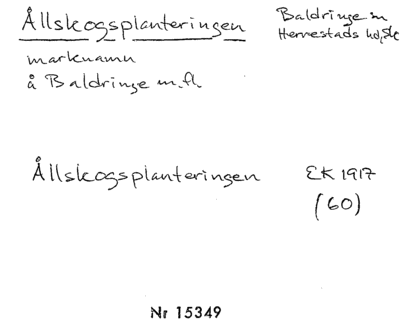 Ållskogsplanteringen
Baldringe sn
Herrestads hd, Sk
marknamn
å Baldringe m.fl.
Ållskogsplanteringen
EK 1917
(60)
Nr 15349